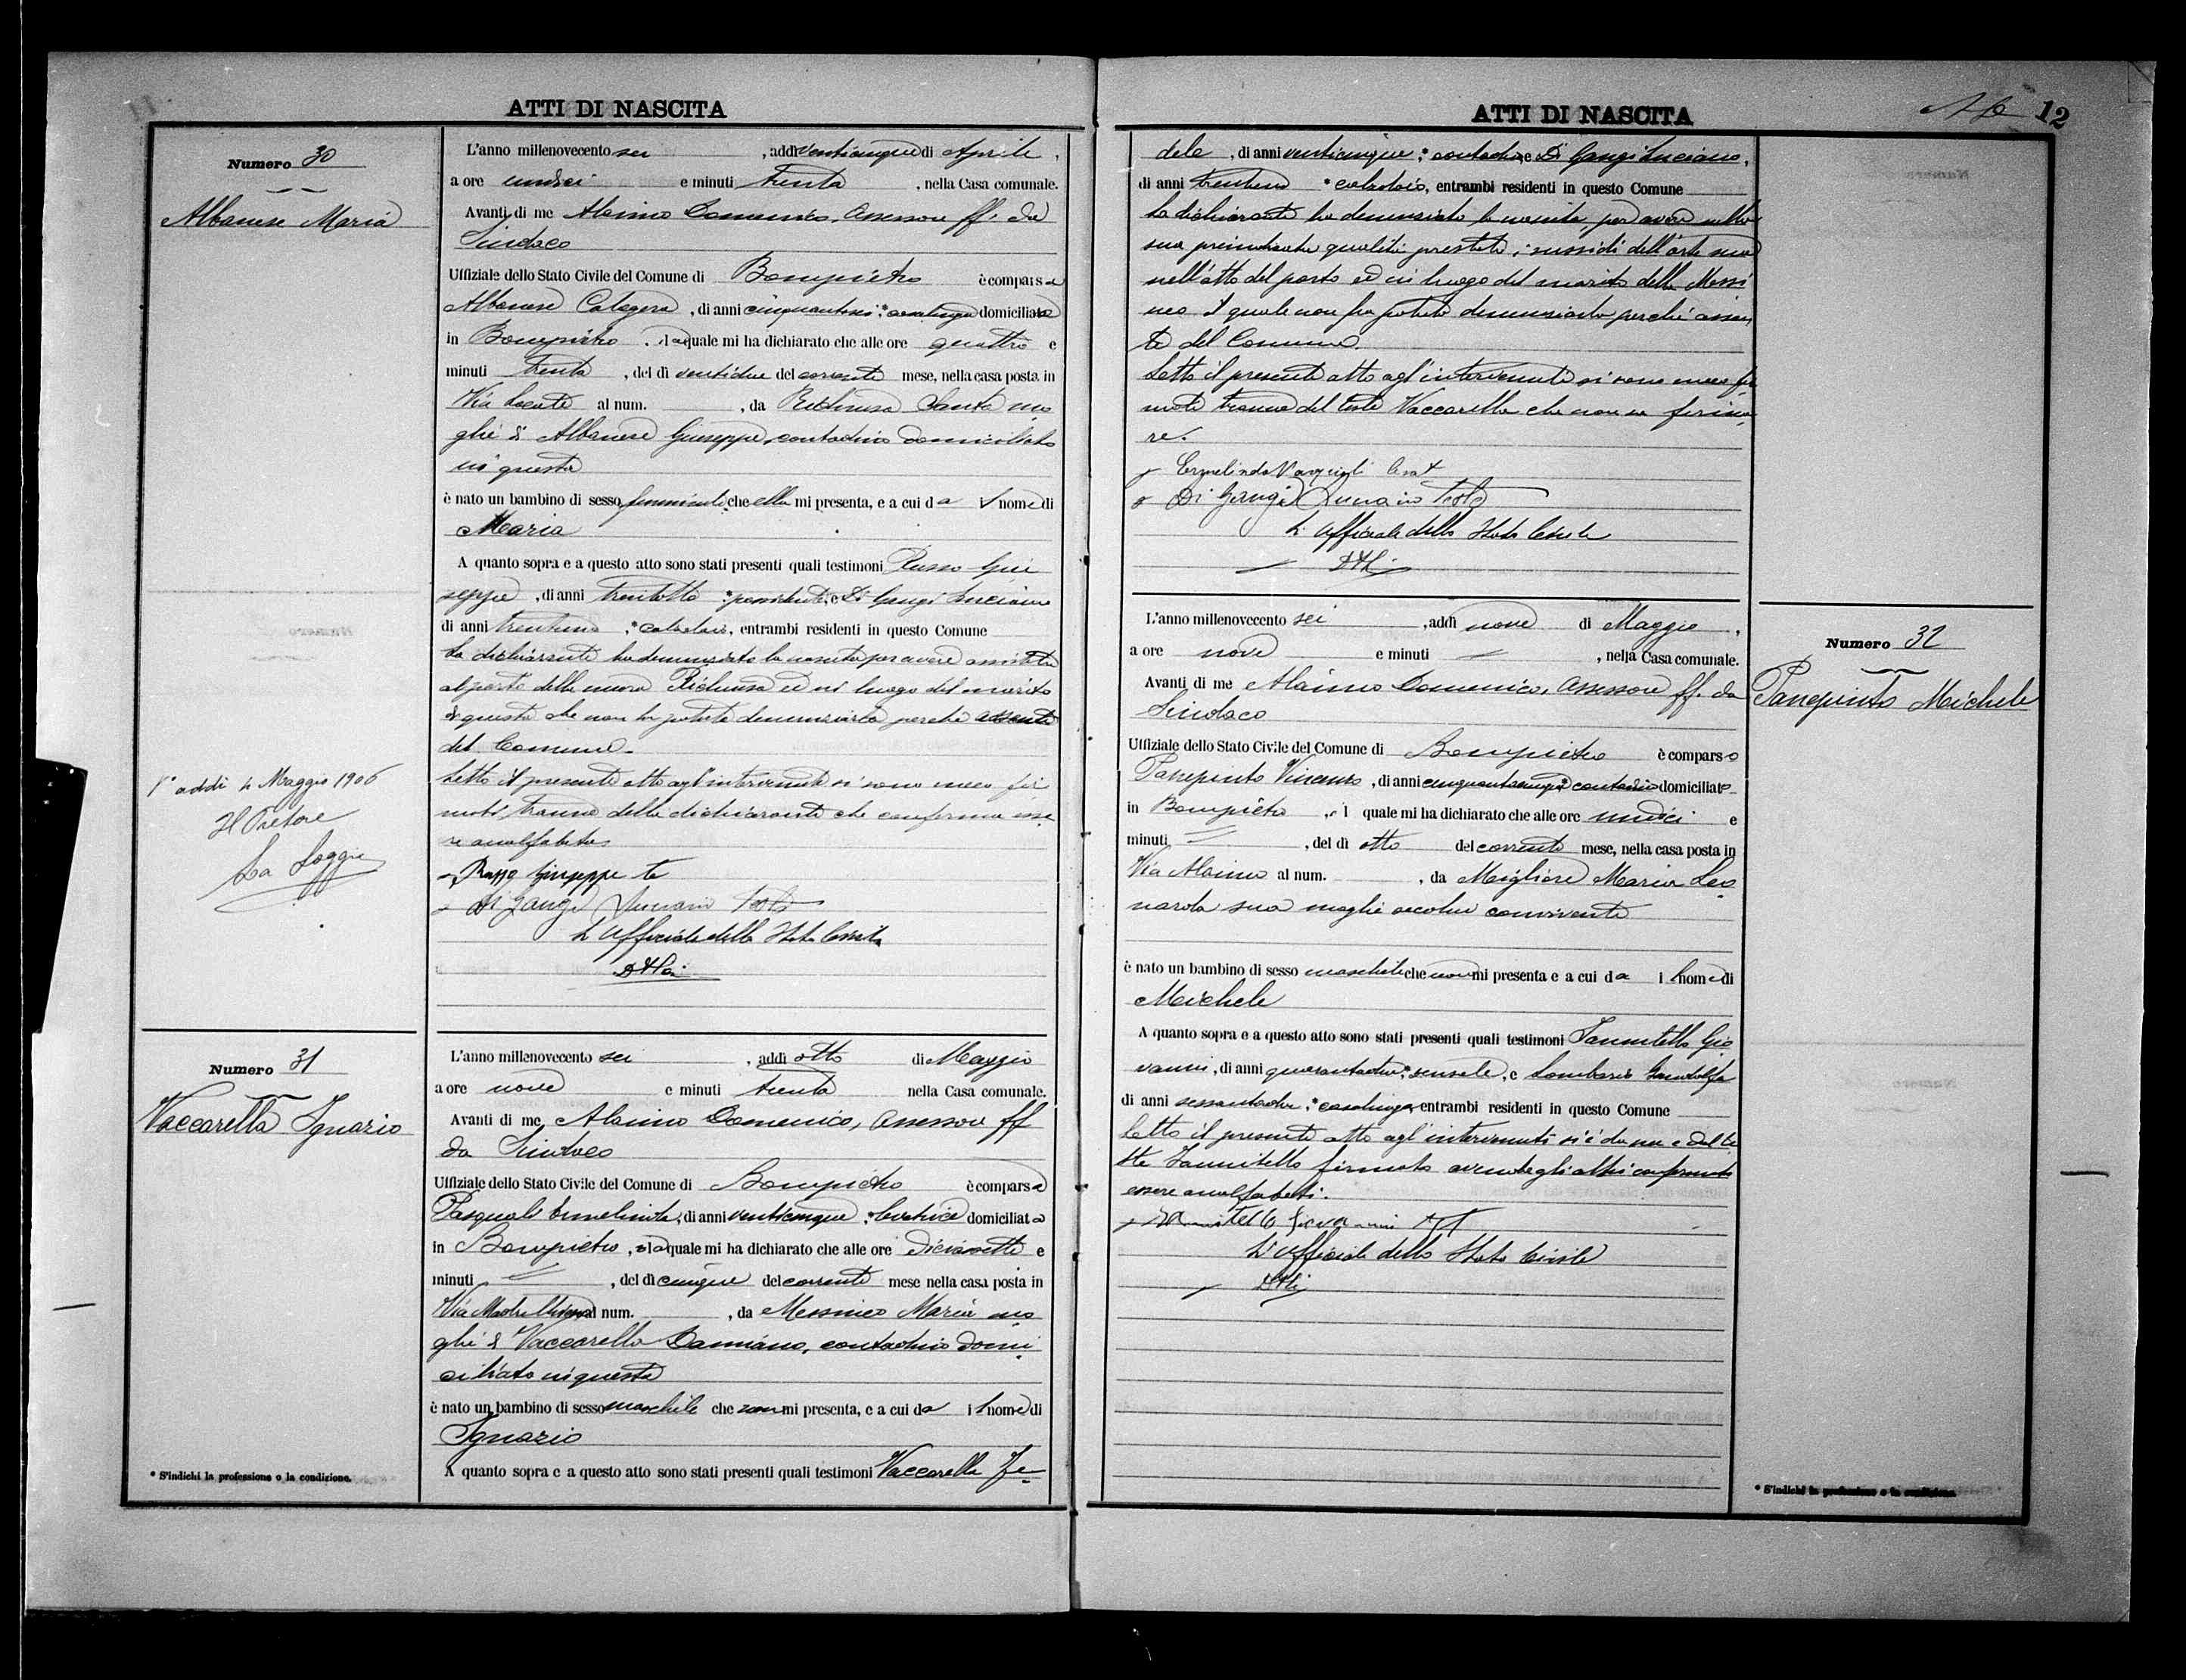 ATTI DI NASCITA
Numero 30
Albanese Maria
L'anno millenovecento sei , addì venticinque di Aprile ,
a ore undici e minuti trenta , nella Casa comunale.
Avanti di me Alaimo Domenico, Assessore ff. da
Sindaco
Uffiziale dello Stato Civile del Comune di Bompietro è comparsa
Albanese Calogera , di anni cinquantasei ;* casalinga domiciliata
in Bompietro , la quale mi ha dichiarato che alle ore quattro e
minuti trenta , del dì ventidue del corrente mese, nella casa posta in
Via Locati al num. , da Richiusa Santa mo
glie di Albanese Giuseppe, contadino domiciliato
in questa
è nato un bambino di sesso femminile che ella mi presenta, e a cui da il nome di
Maria
A quanto sopra e a questo atto sono stati presenti quali testimoni Russo Giu
seppe , di anni trentotto ;* possidente, e Di Gangi Luciano
di anni trentuno ;* calzolaio, entrambi residenti in questo Comune
La dichiarante ha denunziato la nascita per avere assistito
al parto della nuora Richiusa ed in luogo del marito
di questa che non ha potuto denunziarla perchè assente
dal Comune.
Letto il presente atto agl'intervenuti si sono meco fir
mati tranne della dichiarante che conferma esse
re analfabeta
Russo Giuseppe te
Di Gangi Luciano teste
L'Ufficiale dello Stato Civile
1° addì 4 Maggio 1906
Il Pretore
La Loggia
Numero 31
Vaccarella Ignazio
L'anno millenovecento sei , addì otto di Maggio
a ore nove e minuti trenta nella Casa comunale.
Avanti di me, Alaimo Domenico, Assessore ff
da Sindaco
Uffiziale dello Stato Civile del Comune di Bompietro è comparsa
Pasquali Ermelinda, di anni venticinque ;* levatrice domiciliata
in Bompietro , la quale mi ha dichiarato che alle ore diciassette e
minuti = , del dì cinque del corrente mese nella casa posta in
Via Madre Chiesa al num. , da Messineo Maria mo
glie di Vaccarella Damiano, contadino domi
ciliato in questa
è nato un bambino di sesso maschile che non mi presenta, e a cui da il nome di
Ignazio
A quanto sopra e a questo atto sono stati presenti quali testimoni Vaccarella Fe
* S'indichi la professione o la condizione.
ATTI DI NASCITA
12
dele , di anni venticinque ;* contadino e Di Gangi Luciano,
di anni trentuno * calzolaio, entrambi residenti in questo Comune
La dichiarante ha denunziato la nascita, per avere nella
sua preindicata qualità prestati i sussidi dell'arte sua
nell'atto del parto ed in luogo del marito della Messi
neo il quale non ha potuto denunziarla perchè assen
te dal Comune.
Letto il presente atto agl'intervenuti si sono meco fir
mati tranne del teste Vaccarella che non sa firma
re.
Di Gangi Luciano Teste
L'Ufficiale dello Stato Civile
Numero 32
Panepinto Michele
L'anno millenovecento sei , addì nove di Maggio ,
a ore nove e minuti = , nella Casa comunale.
Avanti di me Alaimo Domenico, Assessore ff. da
Sindaco
Uffiziale dello Stato Civile del Comune di Bompietro è comparso
Panepinto Vincenzo , di anni cinquantacinque contadino domiciliato
in Bompietro , il quale mi ha dichiarato che alle ore undici e
minuti = , del dì otto del corrente mese, nella casa posta in
Via Alaimo al num. , da Migliore Maria Leo
narda sua moglie secolui convivente
è nato un bambino di sesso maschile che non mi presenta e a cui da il nome di
Michele
A quanto sopra e a questo atto sono stati presenti quali testimoni Iannitello Gio
vanni, di anni quarantadue ;* sensale, e Lombardo Gandolfa
di anni sessantadue ;* casalinga entrambi residenti in questo Comune
Letto il presente atto agl'intervenuti si è da me e dal te
ste Iannitello firmato avendo gli altri confermato
essere analfabeti.
Iannitello Giovanni
L'Ufficiale dello Stato Civile
* S'indichi la professione o la condizione.